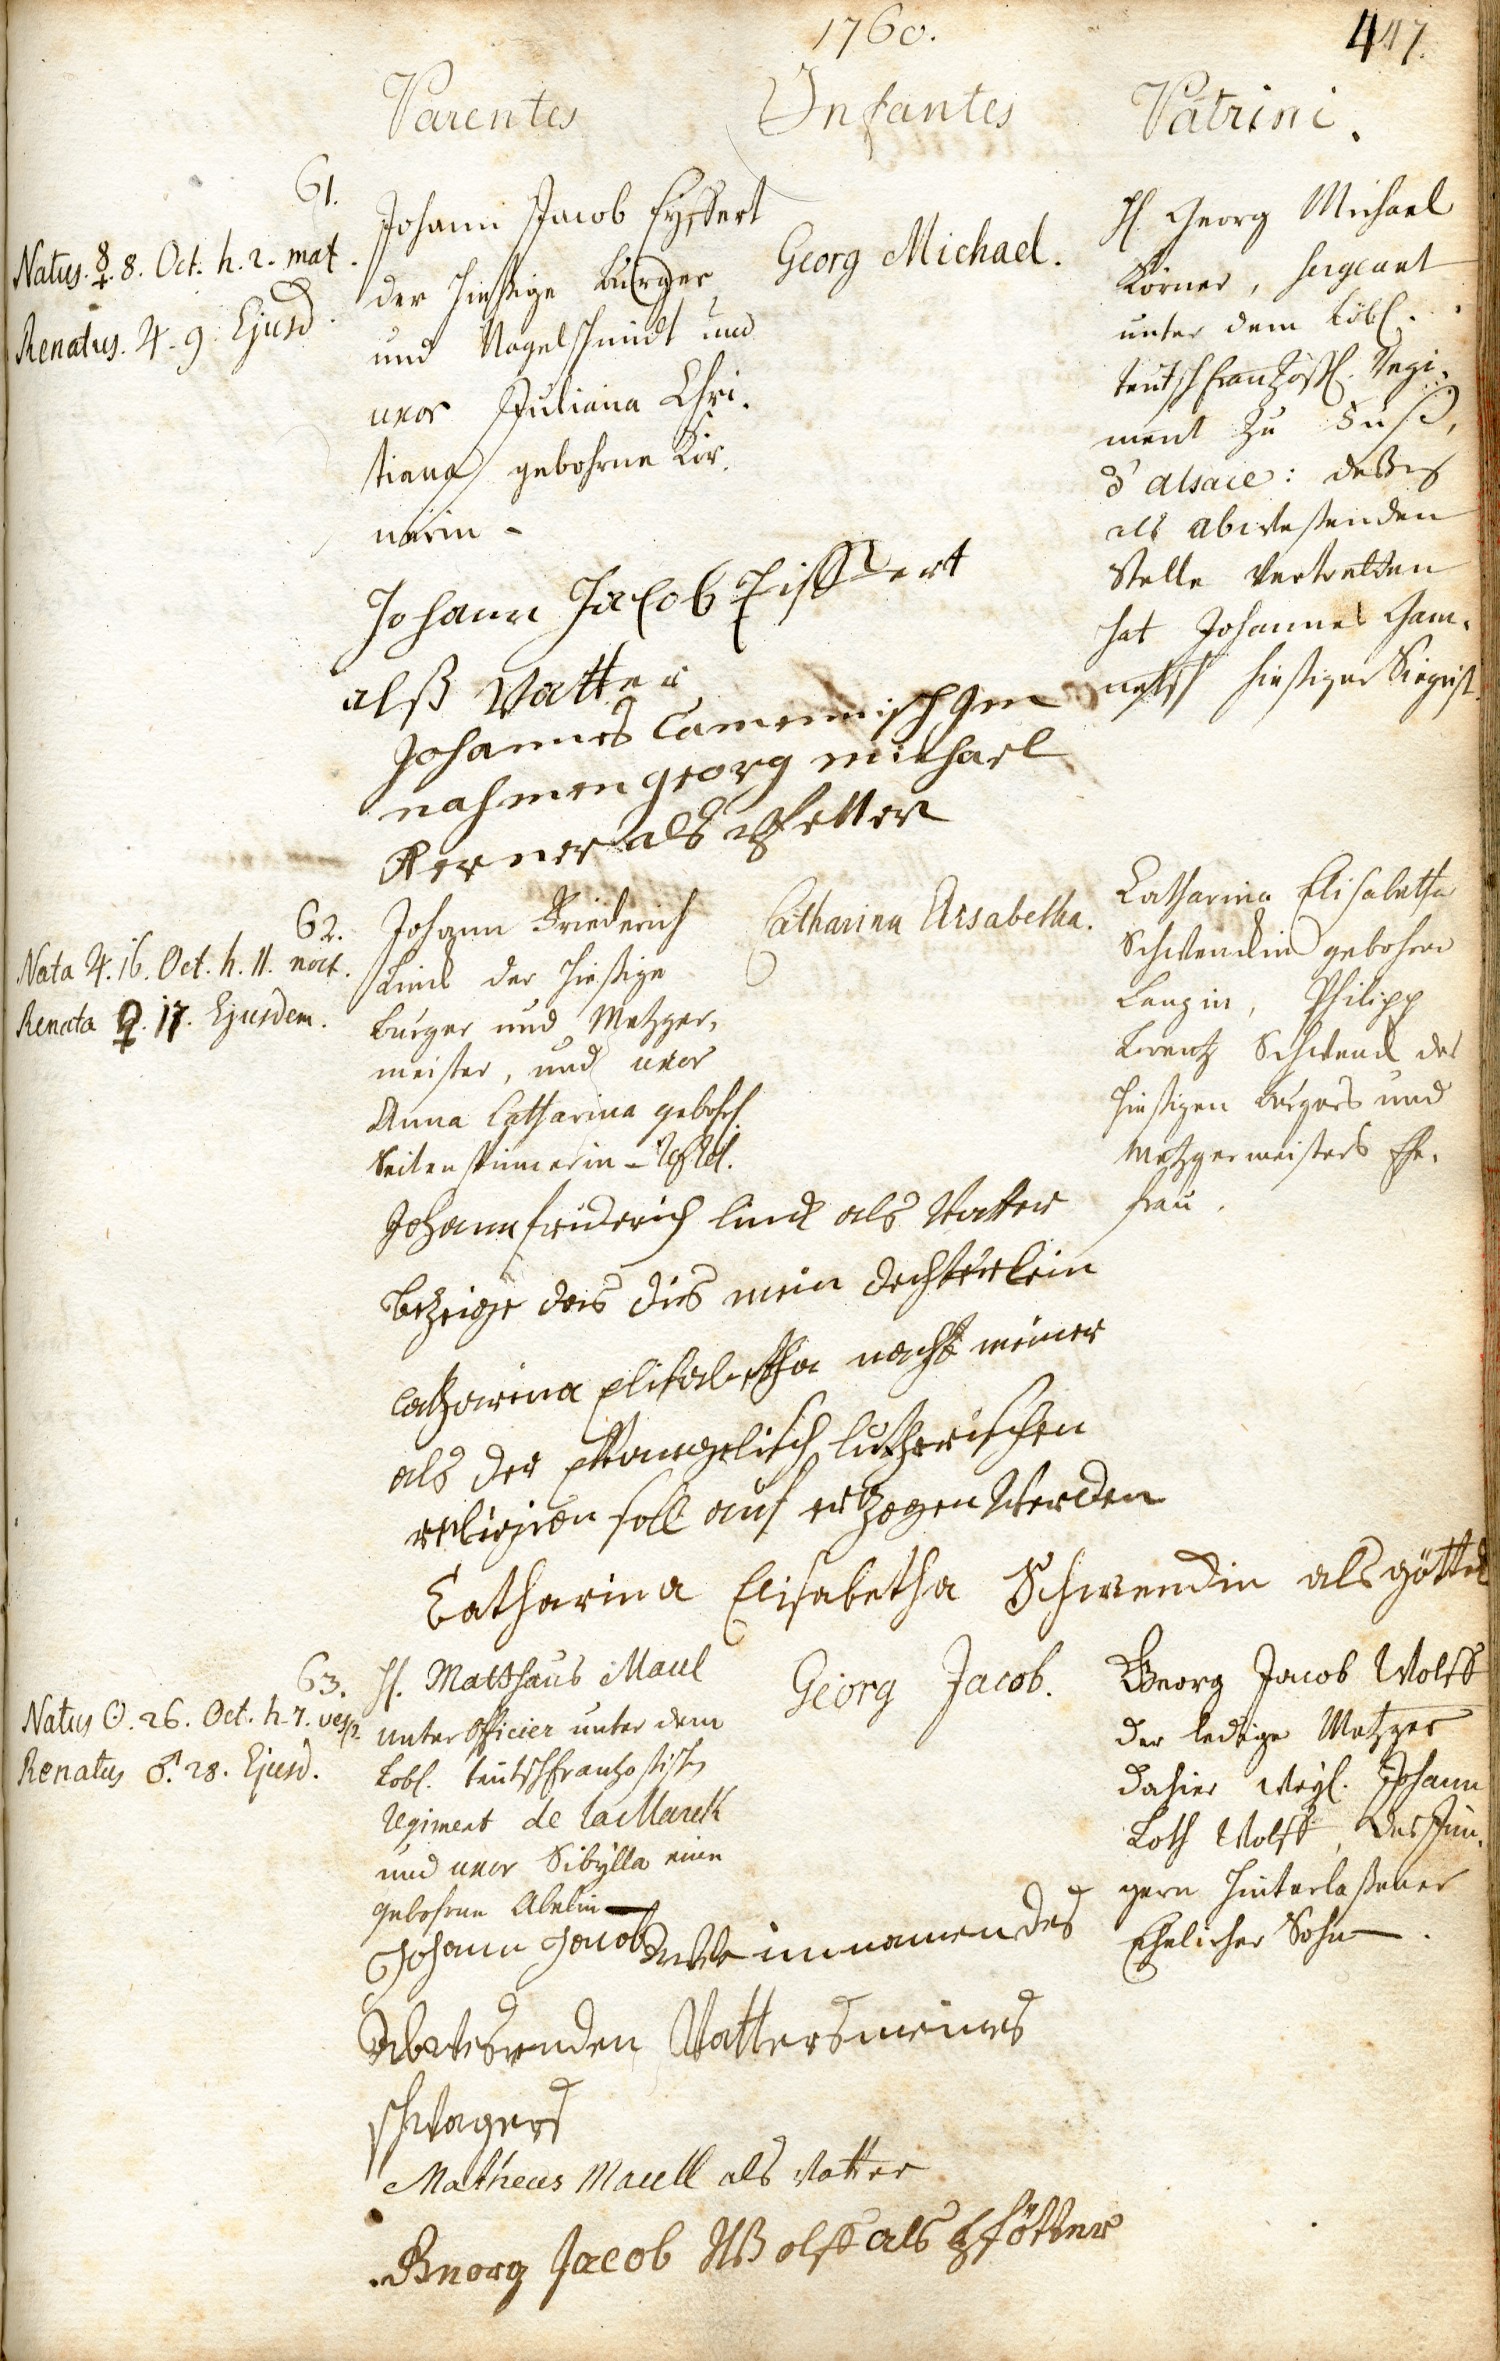 1760.
447.
Parentes
Infantes
Patrini.
61.
Natus. ☿. 8. Oct. h. 2. mat.
Renatus. ♃. 9. Ejusd.
Johann Jacob Eyssert
der hiesige Burger
und Nagelschmidt und
uxor Juliana Chri-
stiana gebohrne Kör-
nerin -
Georg Michael.
H. Georg Michael
Körner, sergeant
unter dem Löbl.
teutschfranzößl. Regi-
ment zu Fuß,
d'alsace: deßen
als abweßenden
Stelle Vertretten
hat Johannes Gam-
hießiger Siegrist.
Johann Jacob Eissert
alß Vatter
Johannes Camenisch Jm
nahmen georg michael
Kerner als Pfetter
62.
Nata ♃. 16. Oct. h. 11. noct.
Renata ♀. 17. Ejusdem.
Johann Friederich
Linck der hießige
Burger und Metzger-
meister, und uxor
Anna Catharina gebohrl.
Seitenspinnerin -
Catharina Elisabetha.
Catharina Elisabetha
Schwendin gebohrne
Lanzin, Philipp
Lorentz Schwend des
hießigen Burgers und
Metzgermeisters Ehe-
frau.
Johann friderich linck als Vatter
bezeige das dis mein dechterlein
Catharina Elisabetha nacht meiner
als der Evangelisch lutherischen
religion soll auf erzogen Werden
Catharina Elisabetha Schwendin als göttel
63.
Natus ☉. 26. Oct. h. 7. vesp.
Renatus ♂. 28. Ejusd.
H. Matthäus Maul
unter Officier unter dem
Löbl. teutschfranzößischen
Regiment de la Marck
und uxor Sibylla eine
gebohrne Abelin
Georg Jacob.
Georg Jacob Wolff
der ledige Metzger
dahier weyl. Johann
Loth Wolff, des Jün-
gern hinterlaßener
Ehelicher Sohn.
Johann Jacob im namen des
Abwesenden Vatters meines
schwagers
Matheus Maull als Vatter
Georg Jacob Wolff als Pfötter